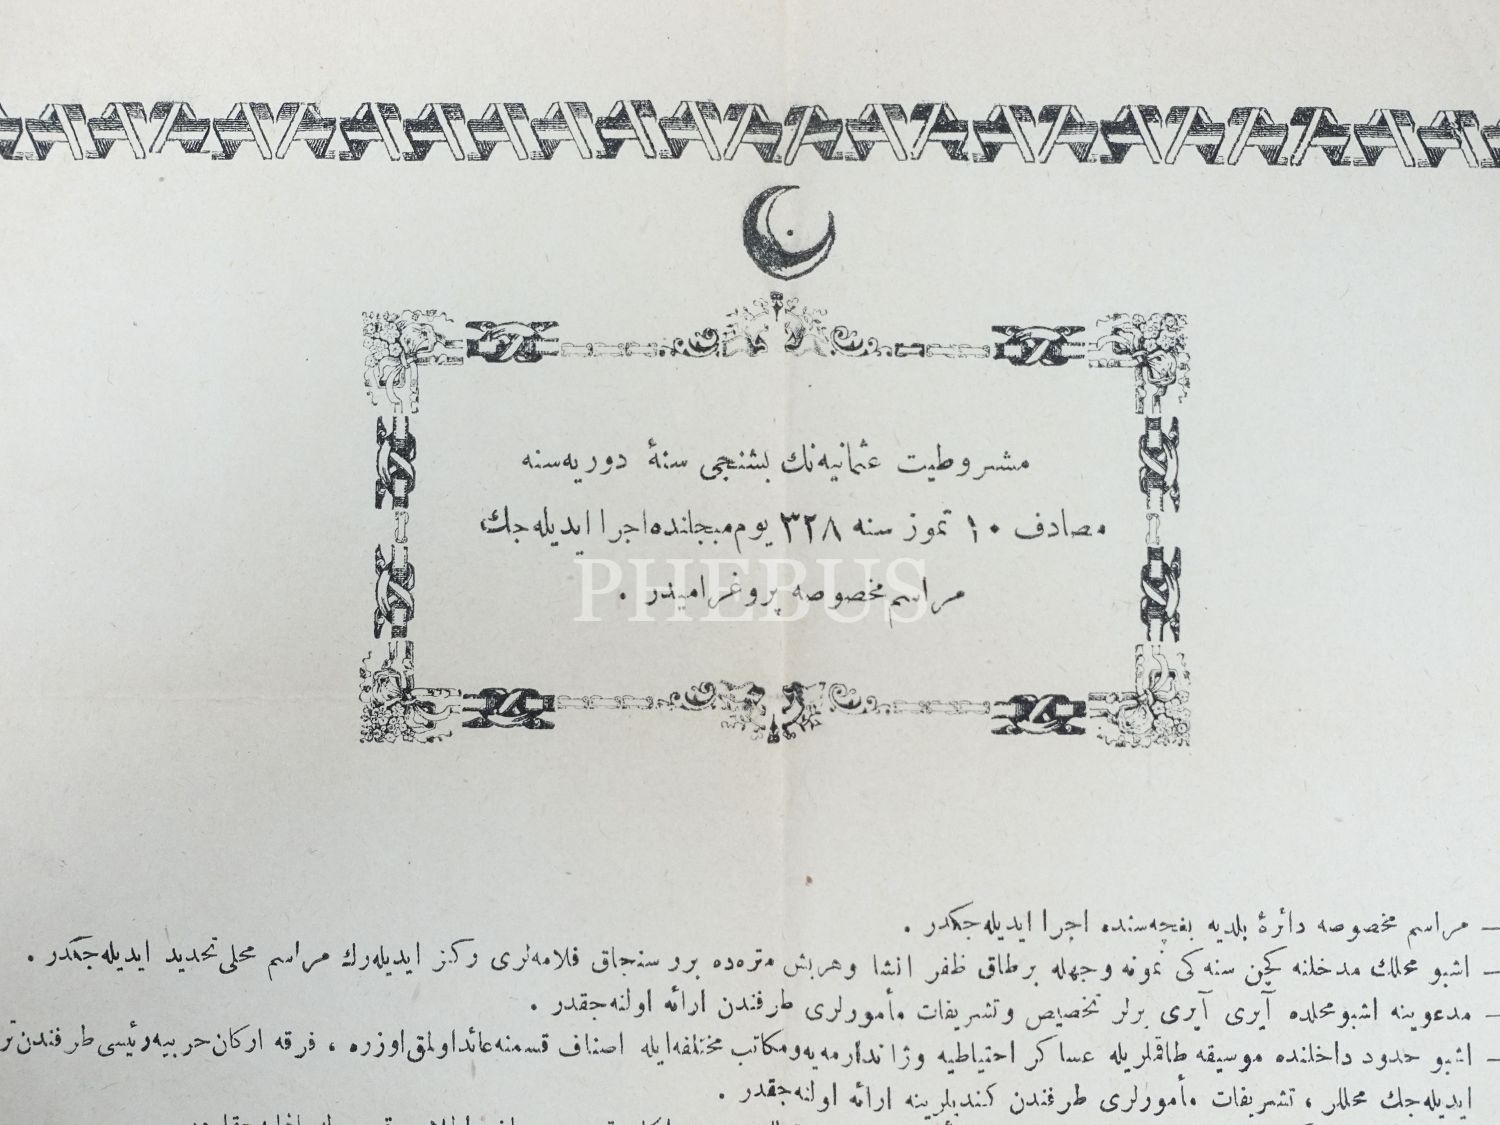 مشروطیت عثمانیه‌نك بشنجی سنهٔ دوریه‌سنه
مصادف ١٠ تموز سنه ٣٢٨ یوم مبجلنده اجرا ایدیله‌جك
مراسم مخصوصه پروغرامیدر .
PHEBUS
— مراسم مخصوصه دائرهٔ بلدیه بغچه‌سنده اجرا ایدیله‌جكدر .
— اشبو محلك مدخلنه كچن سنه كی نمونه وجهله بر طاق ظفر انشا وهر بش متره‌ده برر سنجاق فلامه‌لری ركز ایدیله‌رك مراسم محلی تحدید ایدیله‌جكدر .
— مدعوینه اشبو محلده آیری آیری یرلر تخصیص وتشریفات مأمورلری طرفندن ارائه اولنه‌جقدر .
— اشبو حدود داخلنده موسیقه طاقملریله عساكر احتیاطیه وژاندارمه‌یه ومكاتب مختلفه ایله اصناف قسمنه عائد اولمق اوزره ، فرقه اركان حربیه رئیسی طرفندن
ایدیله‌جك محللر ، تشریفات مأمورلری طرفندن كندیلرینه ارائه اولنه‌جقدر .